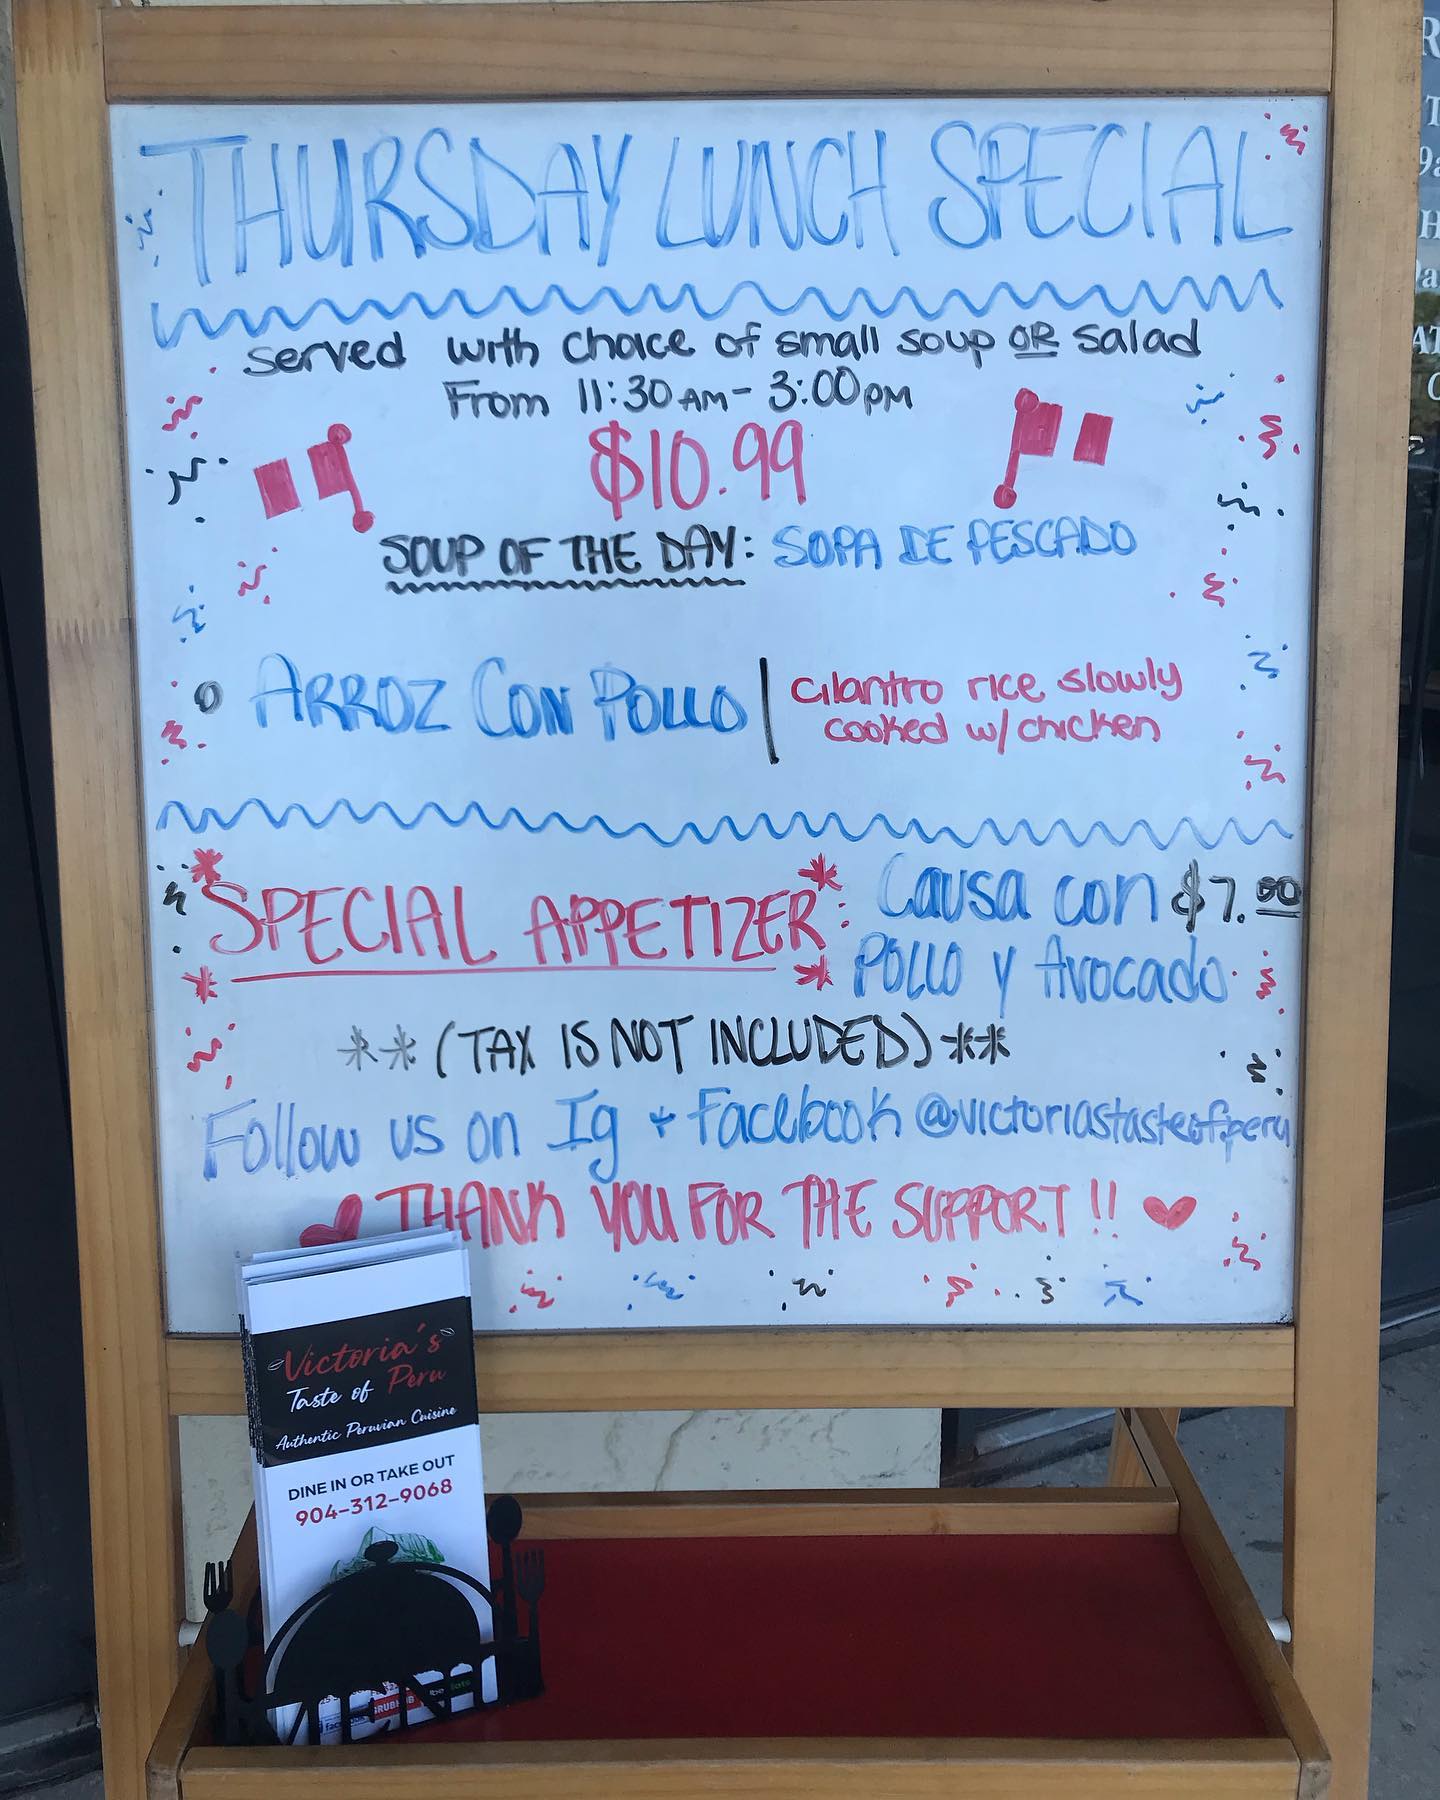 THURSDAY LUNCH SPECIAL
served with choice of small soup OR salad
From 11:30AM - 3:00PM
$10.99
SOUP OF THE DAY: SOPA DE PESCADO
ARROZ CON POLLO | cilantro rice slowly
cooked w/ chicken
*SPECIAL APPETIZER*: Causa con $7.00
POLLO Y Avocado
** (TAX IS NOT INCLUDED) **
Follow us on Ig + Facebook @victoriastasteofperu
THANK YOU FOR THE SUPPORT!!
Victoria's
Taste of Peru
Authentic Peruvian Cuisine
DINE IN OR TAKE OUT
904-312-9068
MENU